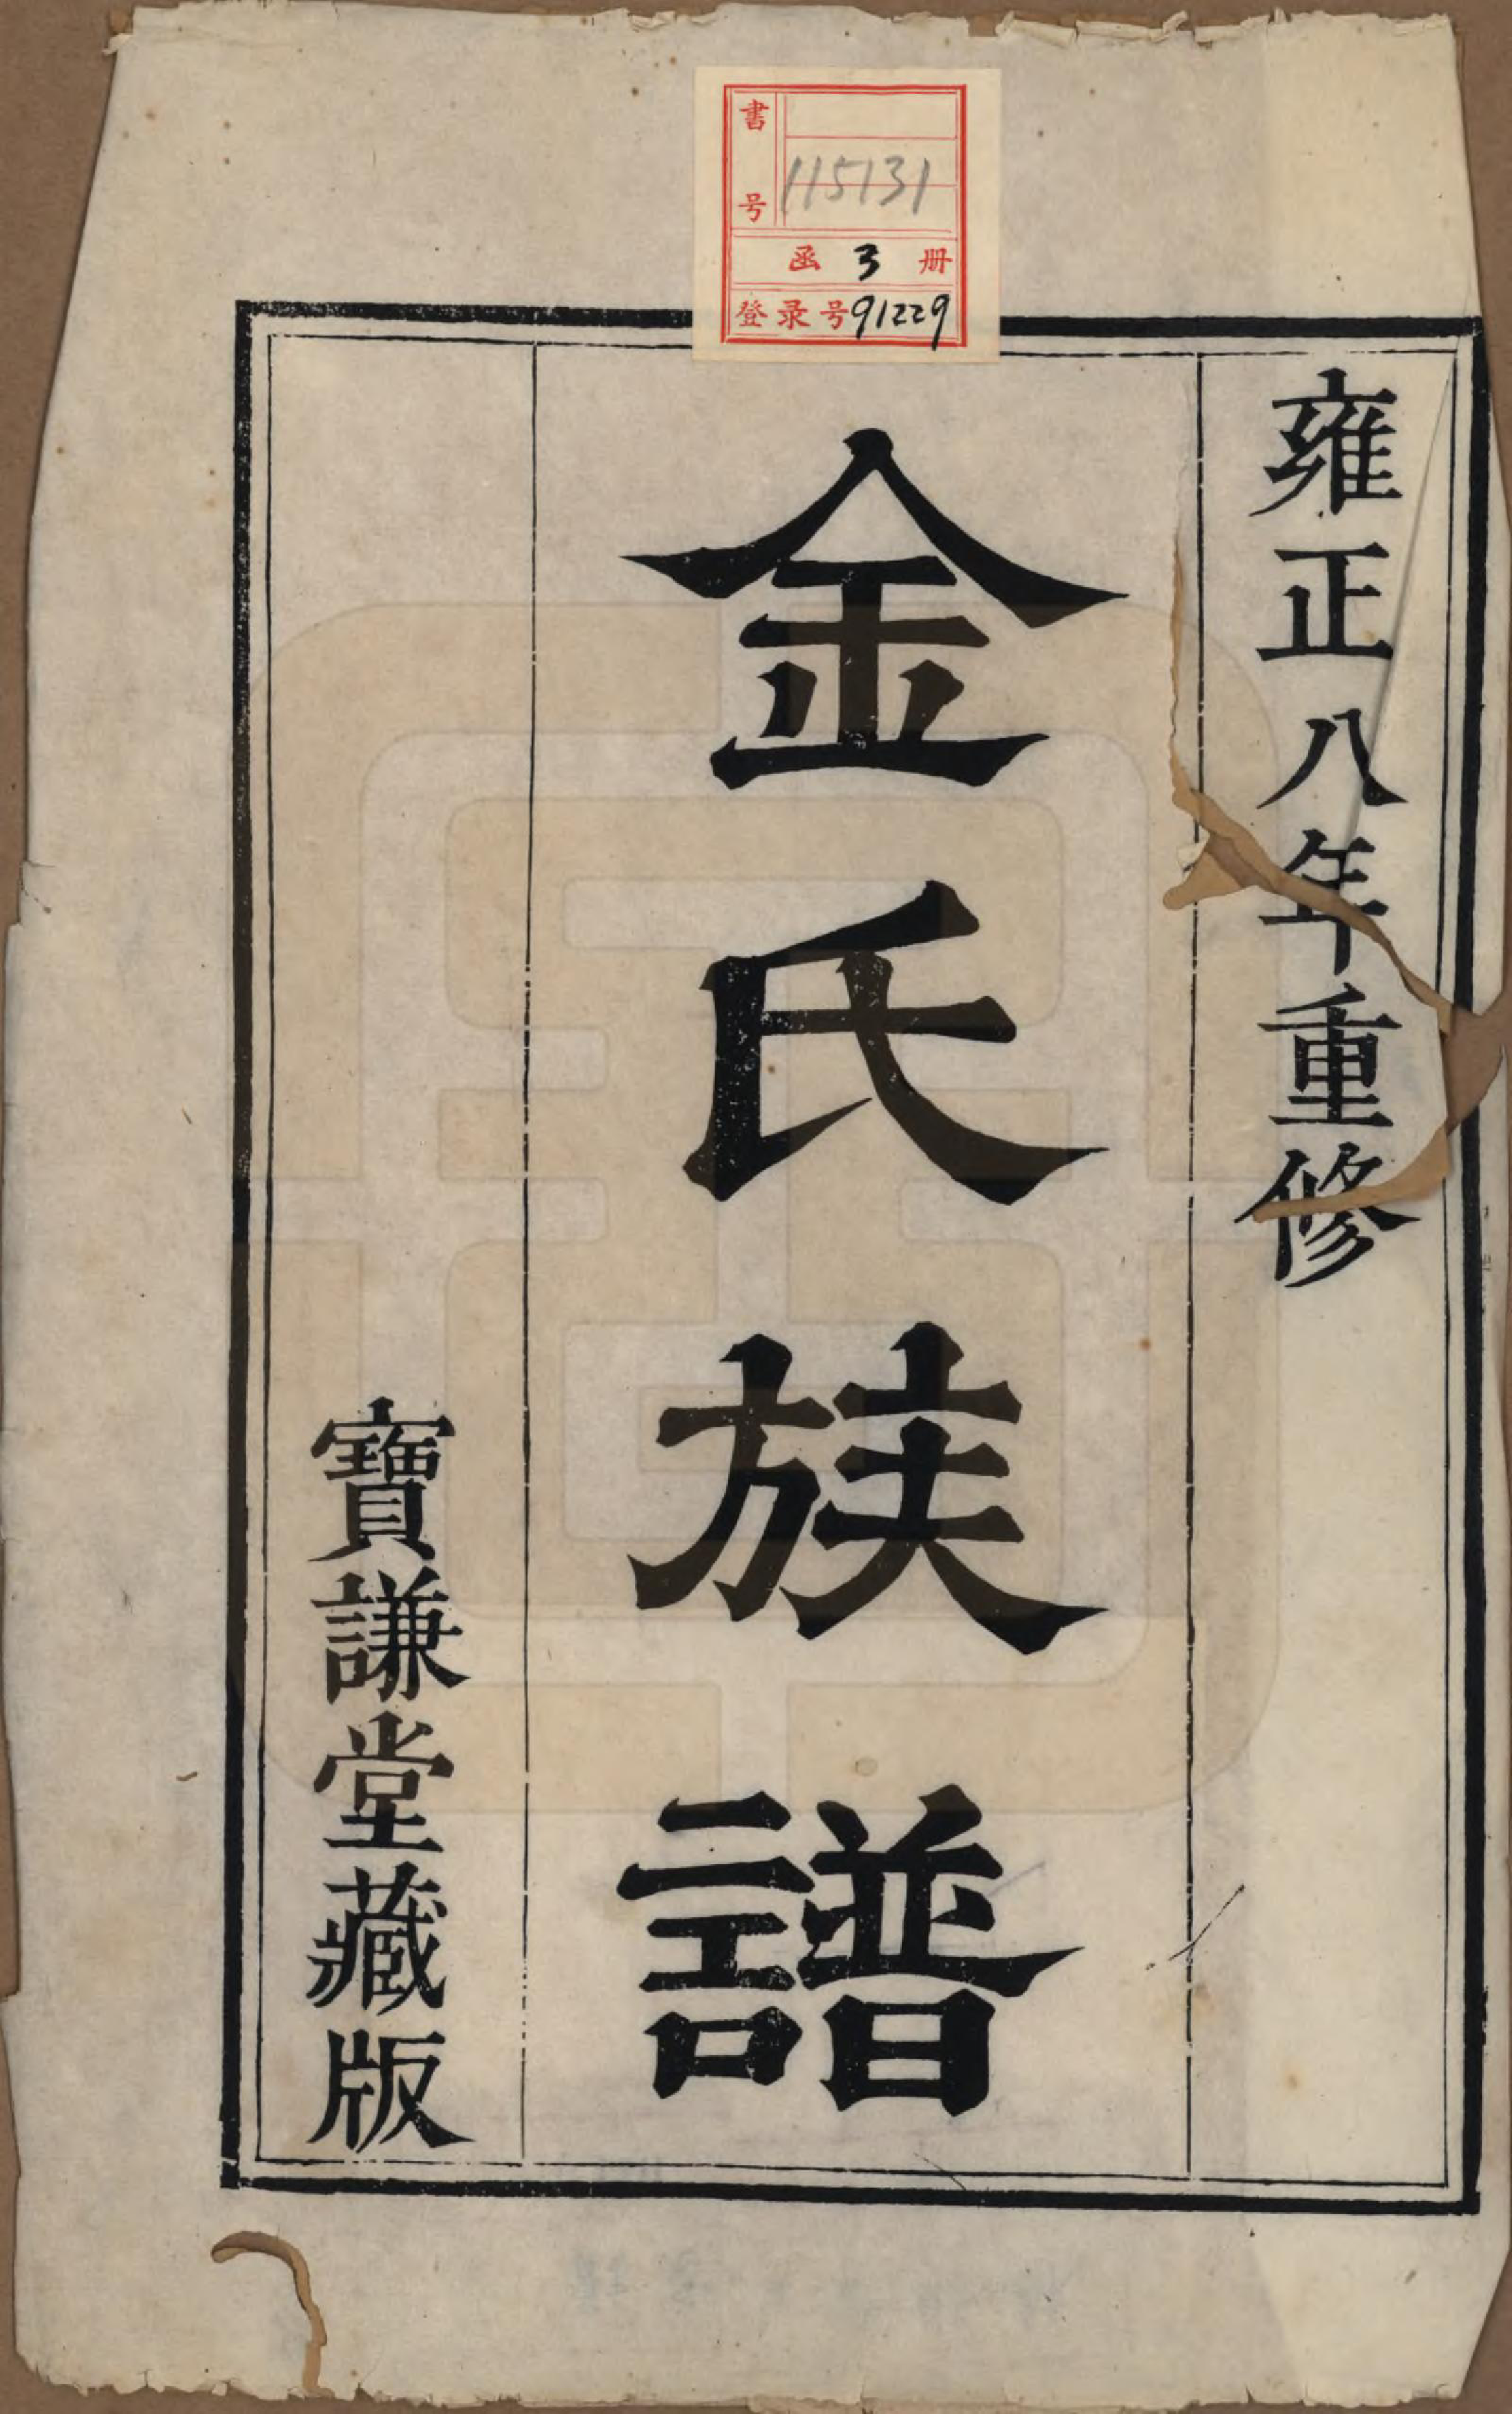 雍正八年重修
金氏族譜
寶謙堂藏版
書号 115131
函 3 册
登录号 91229